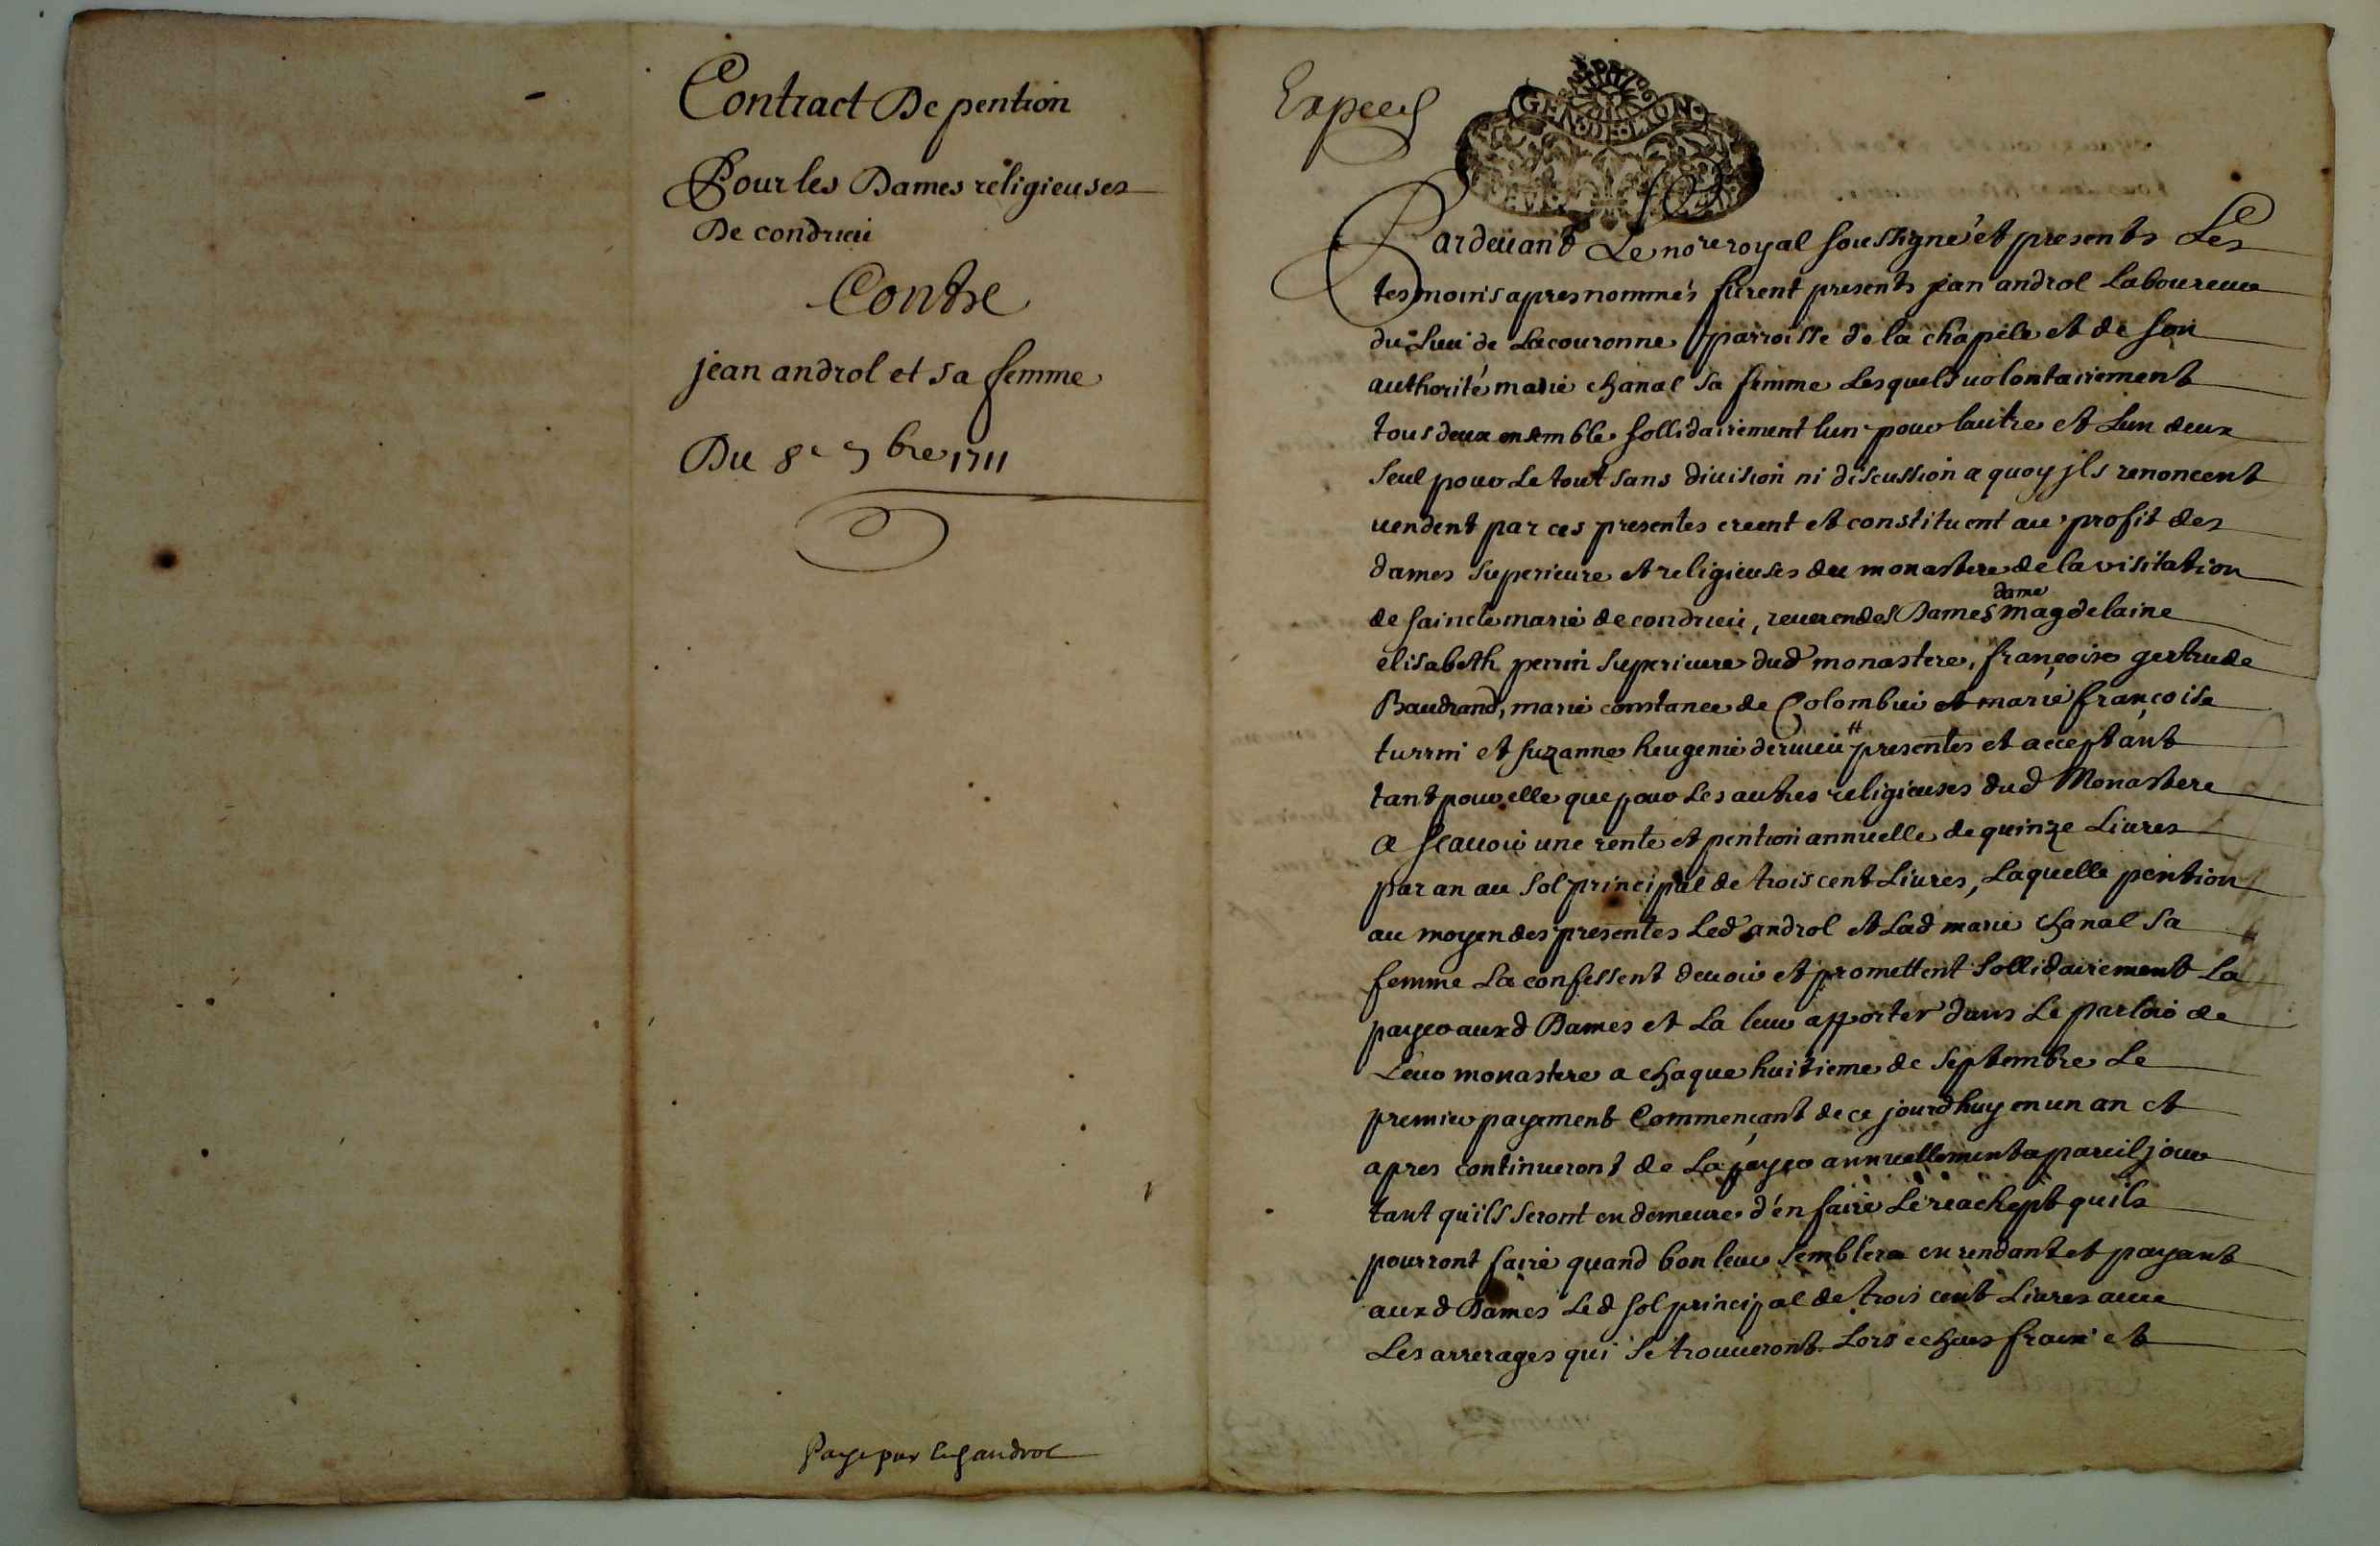 Contract De pention
Pour les Dames religieuses
De condrieu
Contre
jean androl et sa femme
Du 8e 7bre 1711
Paye par led androl
GEN DE LYON
Pardeuant Le nore royal soussigné et presents Les
tesmoins apres nommés furent presents jean androl Laboureur
du Lieu de Lacouronne parroisse de la chapele et de son
authorité marie chanal sa femme Lesquels uolontairement
tous deux ensemble sollidairement lun pour lautre et Lun deux
seul pour Le tout sans diuision ni discussion a quoy jls renoncent
uendent par ces presentes creent et constituent au profit des
dames superieure et religieuses du monastere de la visitation
de saincte marie de condrieu, reuerendes Dames dame magdelaine
elisabeth perrin superieure dud monastere, françoise gertrude
Baudrand, marie constance de Colombier et marie françoise
turrin et suzanne heugenie deruieu presentes et acceptant
tant pour elle que pour Les autres religieuses dud Monastere
a scauoir une rente et pention annuelle de quinze Liures
par an au sol principal de trois cent Liures, Laquelle pention
au moyen des presentes Led androl et Lad marie chanal sa
femme La confessent deuoir et promettent sollidairement La
payer auxd Dames et La leur apporter dans Le parloir de
Leur monastere a chaque huitieme de septembre Le
premier payement Commençant de ce jourdhuy en un an et
apres continueront de La payer annuellement a pareil jour
tant qu'ils seront en demeure d'en faire Le reachept quils
pourront faire quand bon leur semblera en rendant et payant
auxd Dames Led sol principal de trois cent Liures auec
Les arrerages qui se trouueront Lors echeus fraix et